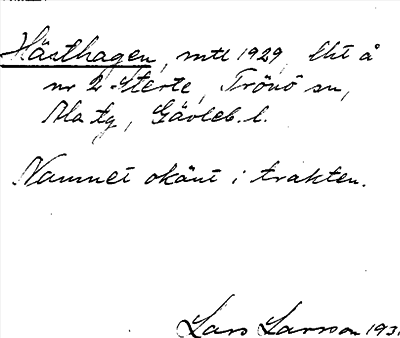 Hästhagen, mtl 1929, lht å
nr 2 Sterte, Trönö sn,
Ala tg, Gävleb. l.
Namnet okänt i trakten.
Lars Larsson 193